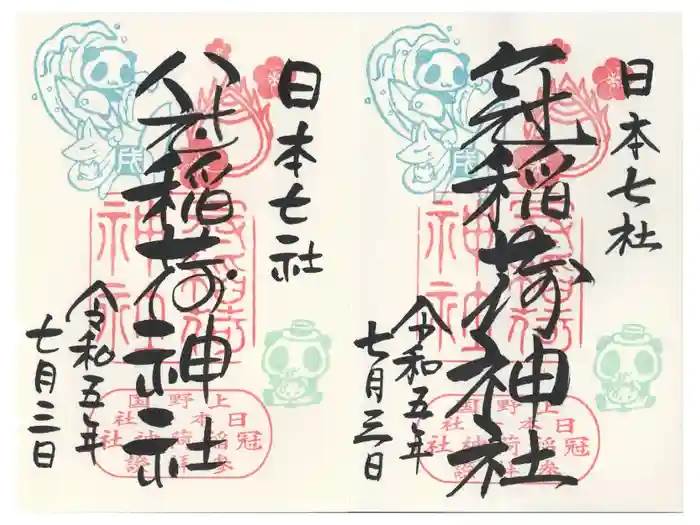 日本七社
冠稲荷神社
令和五年
七月三日
上野国
冠稲荷神社
参拝證
日本七社
冠稲荷神社
令和五年
七月三日
上野国
冠稲荷神社
参拝證